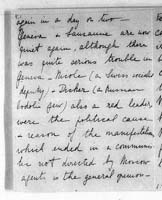 again in a day or two —
Geneva & Lausanne are now
quiet again, although there
was quite serious trouble in
Geneva — Nicole (a Swiss socialist
deputy) — Dicker (a Russian
jew) also a red leader
were the political cause
& reason of the manifestation
which ended in a communist
directed by Moscow
agents is the general opinion —